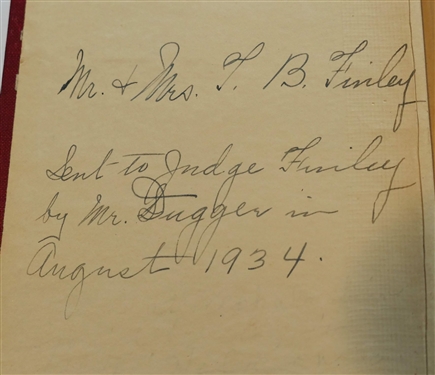 Mr. + Mrs. T. B. Finley
Sent to Judge Finley
by Mr. Dugger in
August 1934.